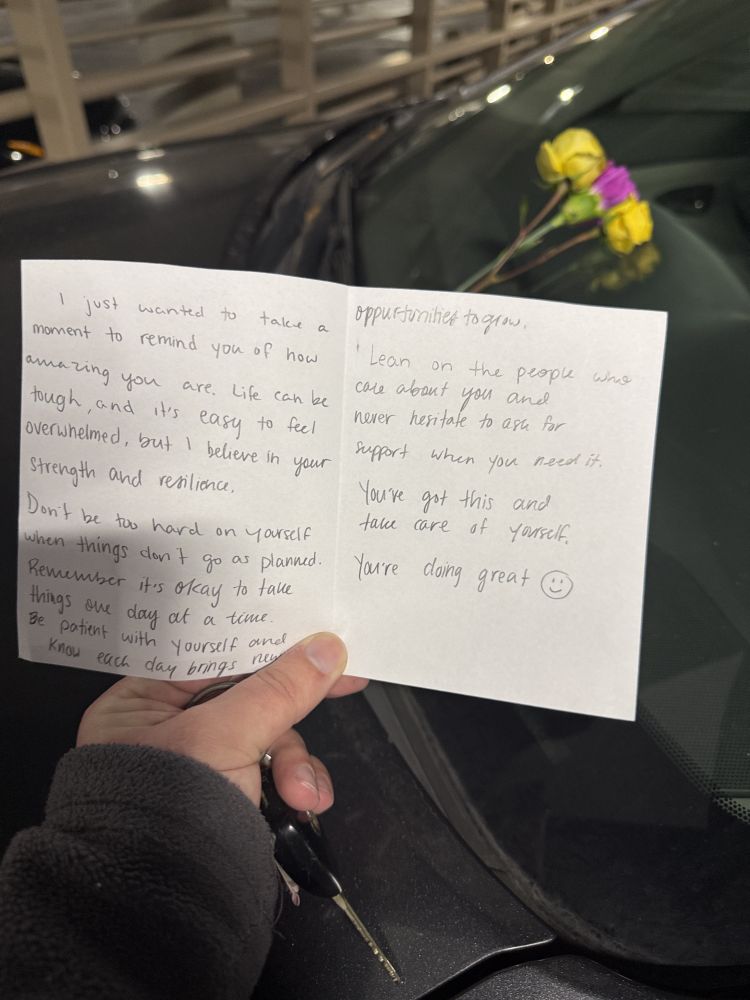 I just wanted to take a
moment to remind you of how
amazing you are. Life can be
tough, and it's easy to feel
overwhelmed, but I believe in your
strength and resilience.
Don't be too hard on yourself
when things don't go as planned.
Remember it's okay to take
things one day at a time.
Be patient with yourself and
know each day brings new
oppurtunities to grow.
Lean on the people who
care about you and
never hesitate to ask for
support when you need it.
You've got this and
take care of yourself.
You're doing great